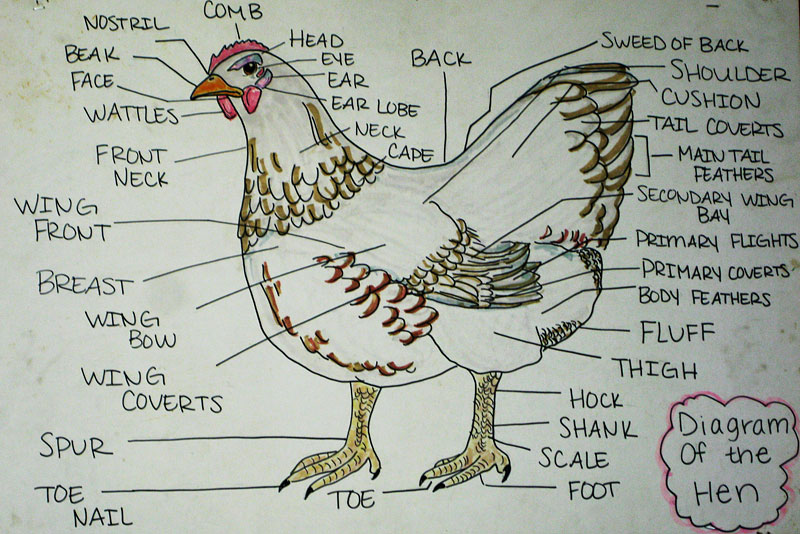 COMB
NOSTRIL
BEAK
FACE
WATTLES
FRONT
NECK
WING
FRONT
BREAST
WING
BOW
WING
COVERTS
SPUR
TOE
NAIL
HEAD
EYE
EAR
EAR LOBE
NECK
CAPE
BACK
SWEED OF BACK
SHOULDER
CUSHION
TAIL COVERTS
MAIN TAIL
FEATHERS
SECONDARY WING
BAY
PRIMARY FLIGHTS
PRIMARY COVERTS
BODY FEATHERS
FLUFF
THIGH
HOCK
SHANK
SCALE
FOOT
TOE
Diagram
Of the
Hen